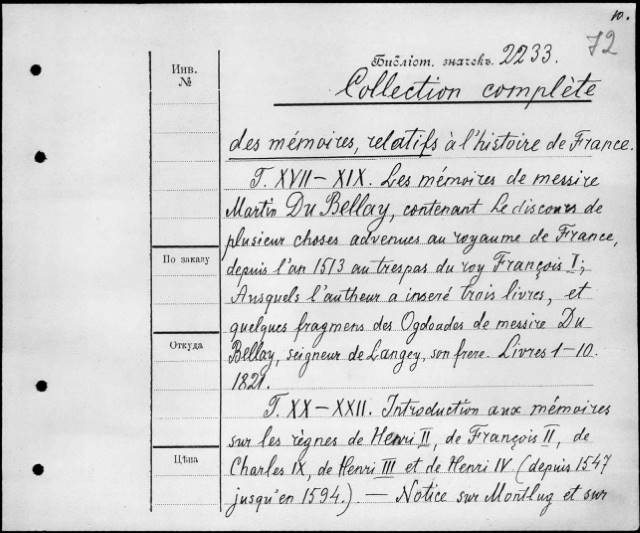 10.
72
Инв.
№
Библіот. значекъ. 2233.
Collection complète
des mémoires, relatifs à l'histoire de France.
T. XVII – XIX. Les mémoires de messire
Martin Du Bellay, contenant le discours de
plusieur choses advenues au royaume de France,
По заказу
depuis l'an 1513 au trespas du roy François I;
Ausquels l'autheur a inseré trois livres, et
quelques fragmens des Ogdoades de messire Du
Откуда
Bellay, seigneur de Langey, son frere. Livres 1–10.
1821.
T. XX – XXII. Introduction aux mémoires
sur les règnes de Henri II, de François II, de
Цѣна
Charles IX, de Henri III et de Henri IV (depuis 1547
jusqu'en 1594.) — Notice sur Montlug et sur